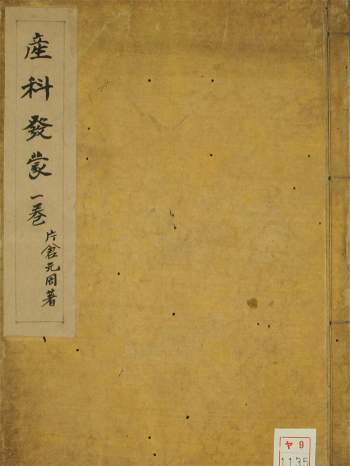 産科發蒙 一巻
片倉元周著
ヤ9
1135